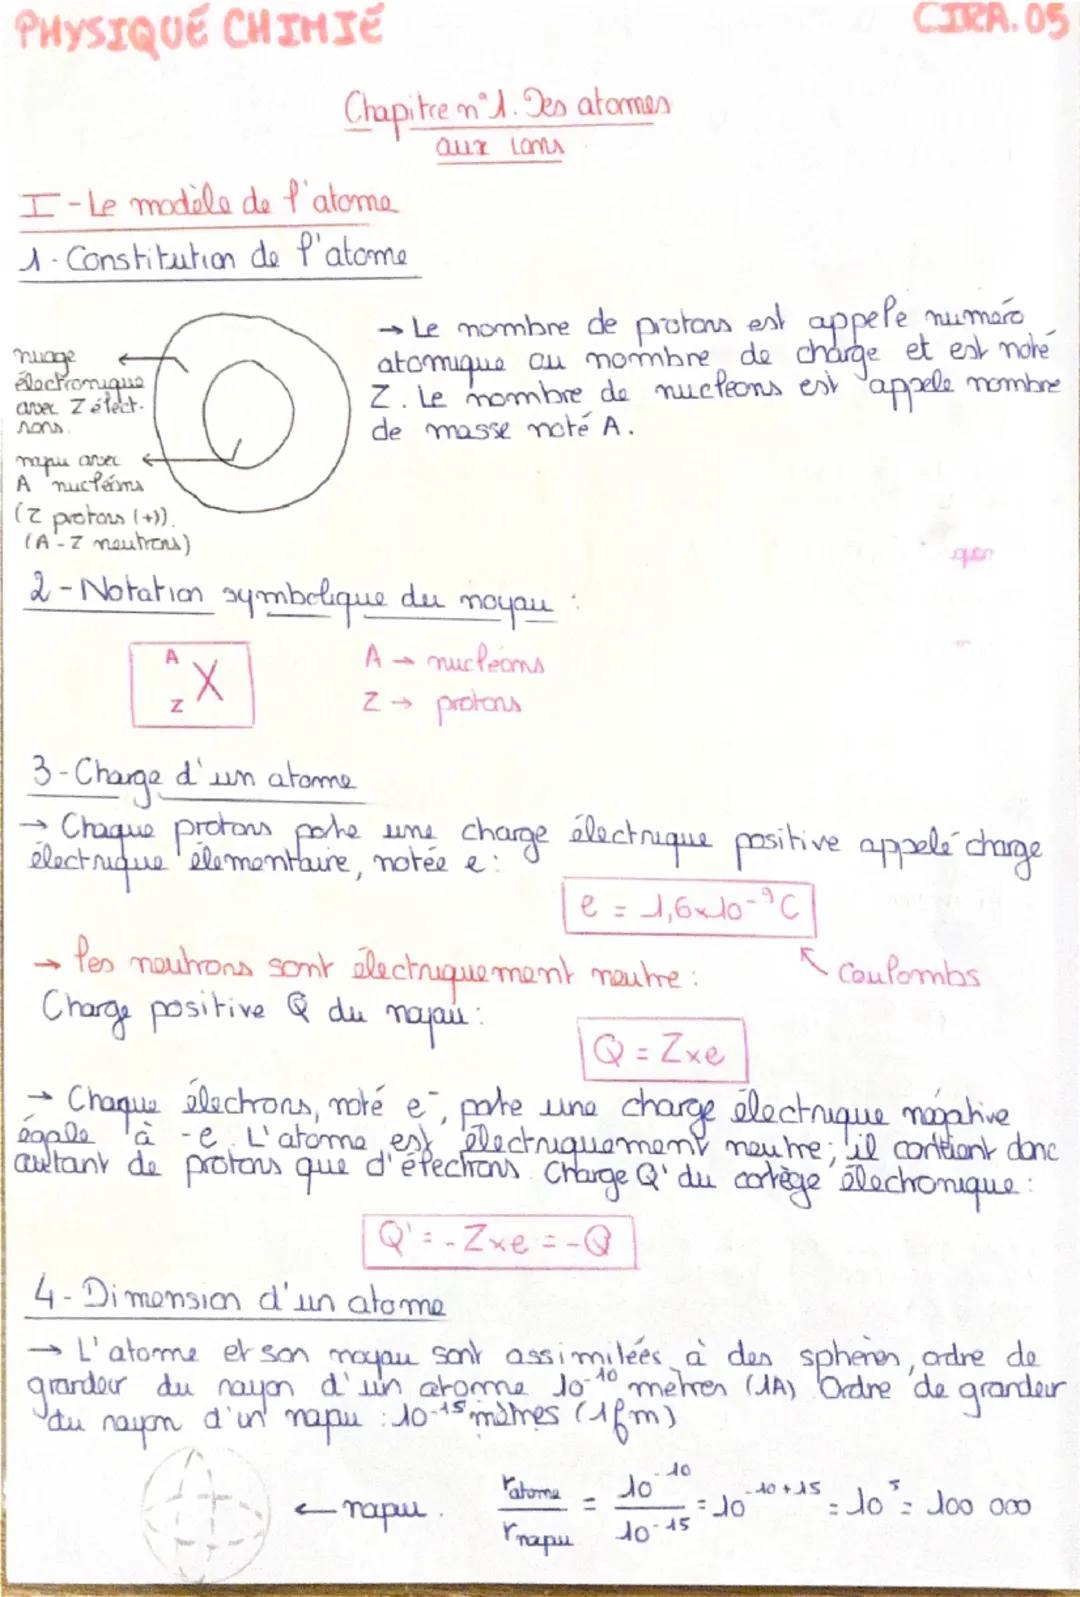 PHYSIQUE CHIMIE
CIRA.05
Chapitre n°1. Des atomes
aux ions
I - Le modèle de l'atome
1 - Constitution de l'atome
nuage
électronique
avec Z élect-
rons.
noyau avec
A nucléons
(Z protons (+)).
(A - Z neutrons)
→ Le nombre de protons est appelé numéro
atomique ou nombre de charge et est noté
Z. Le nombre de nucléons est appelé nombre
de masse noté A.
2 - Notation symbolique du noyau :
A
Z X
A → nucléons
Z → protons
3 - Charge d'un atome
→ Chaque protons porte une charge électrique positive appelé charge
électrique élementaire, notée e :
e = 1,6×10⁻⁹C
→ les neutrons sont électriquement neutre :
Coulombs
Charge positive Q du noyau :
Q = Z×e
→ Chaque électrons, noté e⁻, porte une charge électrique négative
égale à -e. L'atome est électriquement neutre ; il contient donc
autant de protons que d'électrons. Charge Q' du cortège électronique :
Q' = - Z×e = - Q
4 - Dimension d'un atome
→ L'atome et son noyau sont assimilées à des sphères, ordre de
grandeur du rayon d'un atome 10⁻¹⁰ mètres (1A) Ordre de grandeur
du rayon d'un noyau : 10⁻¹⁵ mètres (1fm)
← noyau.
r atome / r noyau = 10⁻¹⁰ / 10⁻¹⁵ = 10⁻¹⁰⁺¹⁵ = 10⁵ = 100 000